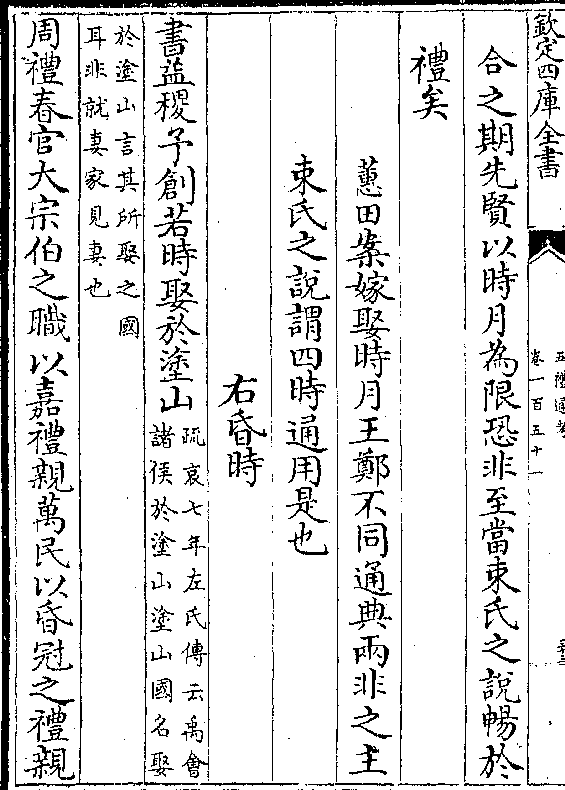 欽定四庫全書
五禮通考
卷一百五十一
合之期先賢以時月為限恐非至當束氏之說暢於
禮矣
蕙田案嫁娶時月王鄭不同通典兩非之主
束氏之說謂四時通用是也
右昏時
書益稷予創若時娶於塗山
疏哀七年左氏傳云禹會
諸侯於塗山塗山國名娶
於塗山言其所娶之國
耳非就妻家見妻也
周禮春官大宗伯之職以嘉禮親萬民以昏冠之禮親